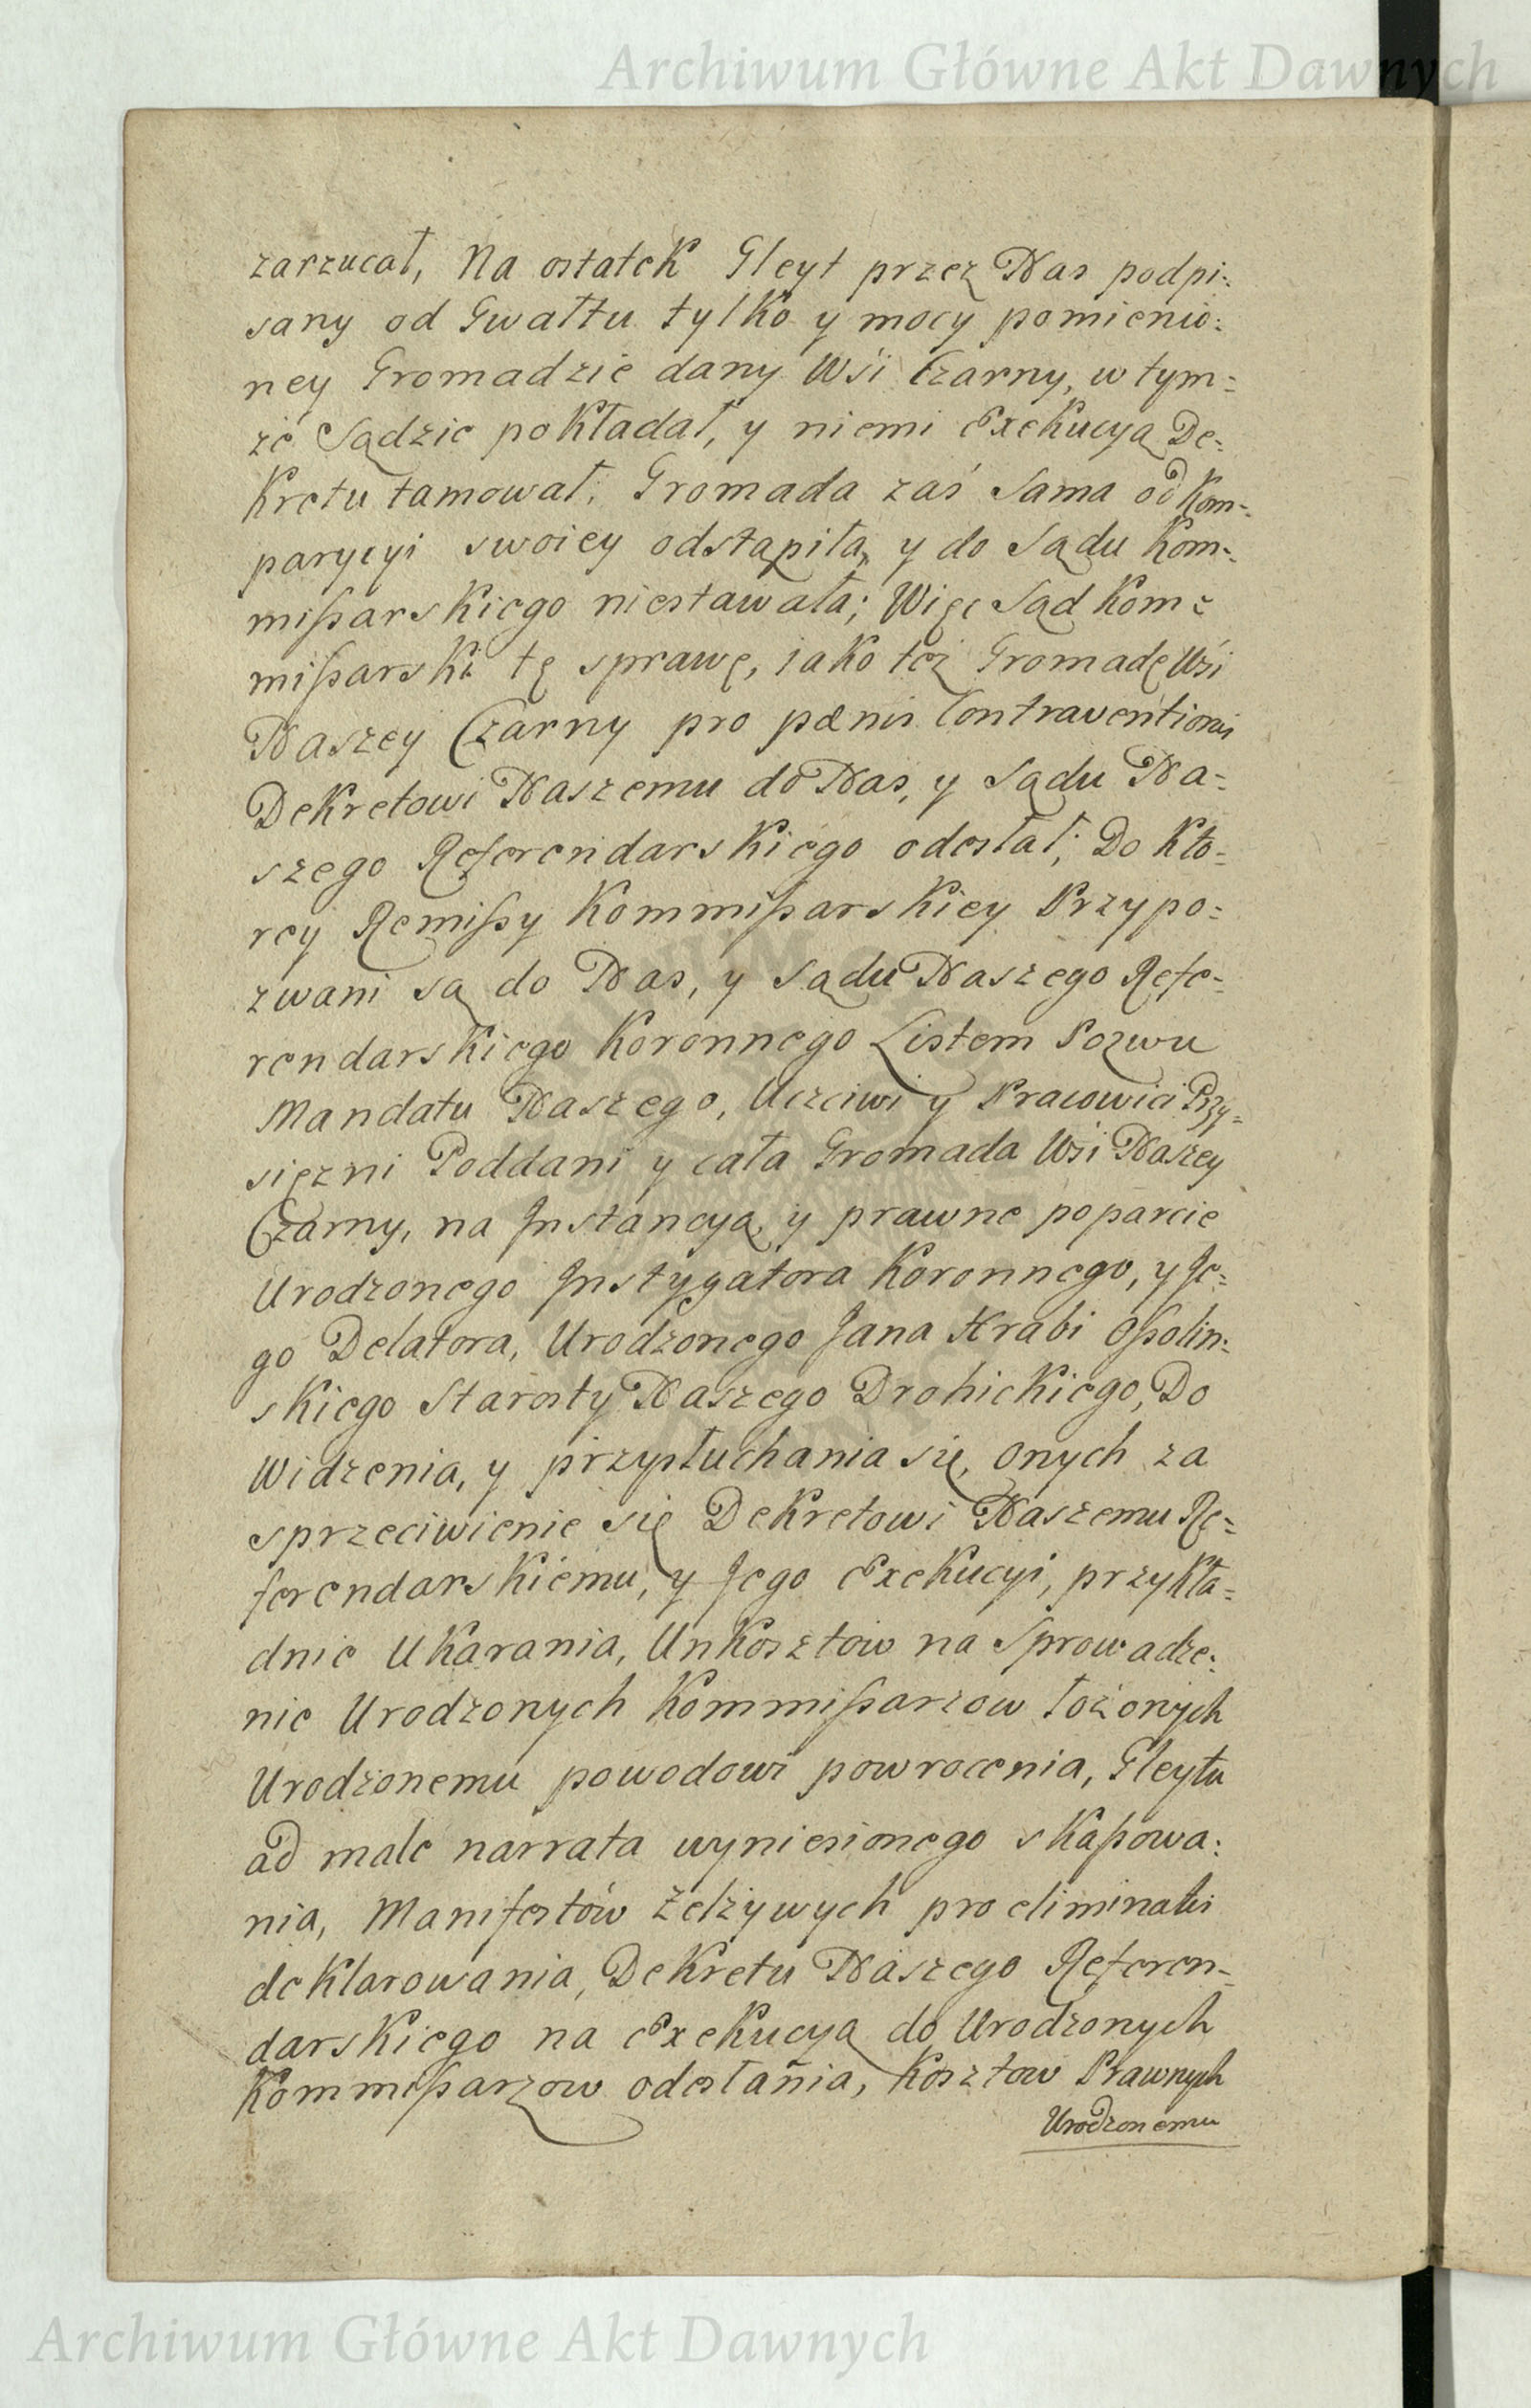 Archiwum Główne Akt Dawnych
zarzucał, Na ostatek Gleyt przez Nas podpi:
sany od Gwałtu tylko y mocy pomienio:
ney Gromadzie dany Wsi Czarny, w tym=
że Sądzie pokładał, y niemi Exekucyą De:
kretu tamował; Gromada zaś sama od kom=
parycyi swoiey odstąpiła, y do Sądu kom:
mißarskiego niestawała; Więc Sąd kom=
mißarski tę sprawę, iako też Gromadę Wsi
Naszey Czarny pro pænis Contraventionis
Dekretowi Naszemu do Nas, y Sądu Na=
szego Referendarskiego odesłał; Do kto=
rey Remißy kommißarskiey Przypo=
zwani są do Nas, y Sądu Naszego Refe=
rendarskiego koronnego Listem Pozwu
Mandatu Naszego, Uczciwi y Pracowici Przy=
sięzni Poddani y cała Gromada Wsi Naszey
Czarny, na Instancyą y prawne poparcie
Urodzonego Instygatora koronnego, y Je=
go Delatora, Urodzonego Jana Hrabi Oßolin:
skiego Starosty Naszego Drohickiego, Do
Widzenia, y przysłuchania się, onych za
sprzeciwienie się Dekretowi Naszemu Re=
ferendarskiemu, y Jego Exekucyi, przykła=
dnie Ukarania, Unkosztow na Sprowadze:
nie Urodzonych kommißarzow łożonych
Urodzonemu powodowi powrocenia, Gleytu
ad male narrata wyniesionego skaßowa:
nia, Manifestów żelżywych pro eliminatis
deklarowania, Dekretu Naszego Referen=
darskiego na Exekucyą do Urodzonych
kommißarzow odesłania, kosztow Prawnych
Urodzonemu
Archiwum Główne Akt Dawnych